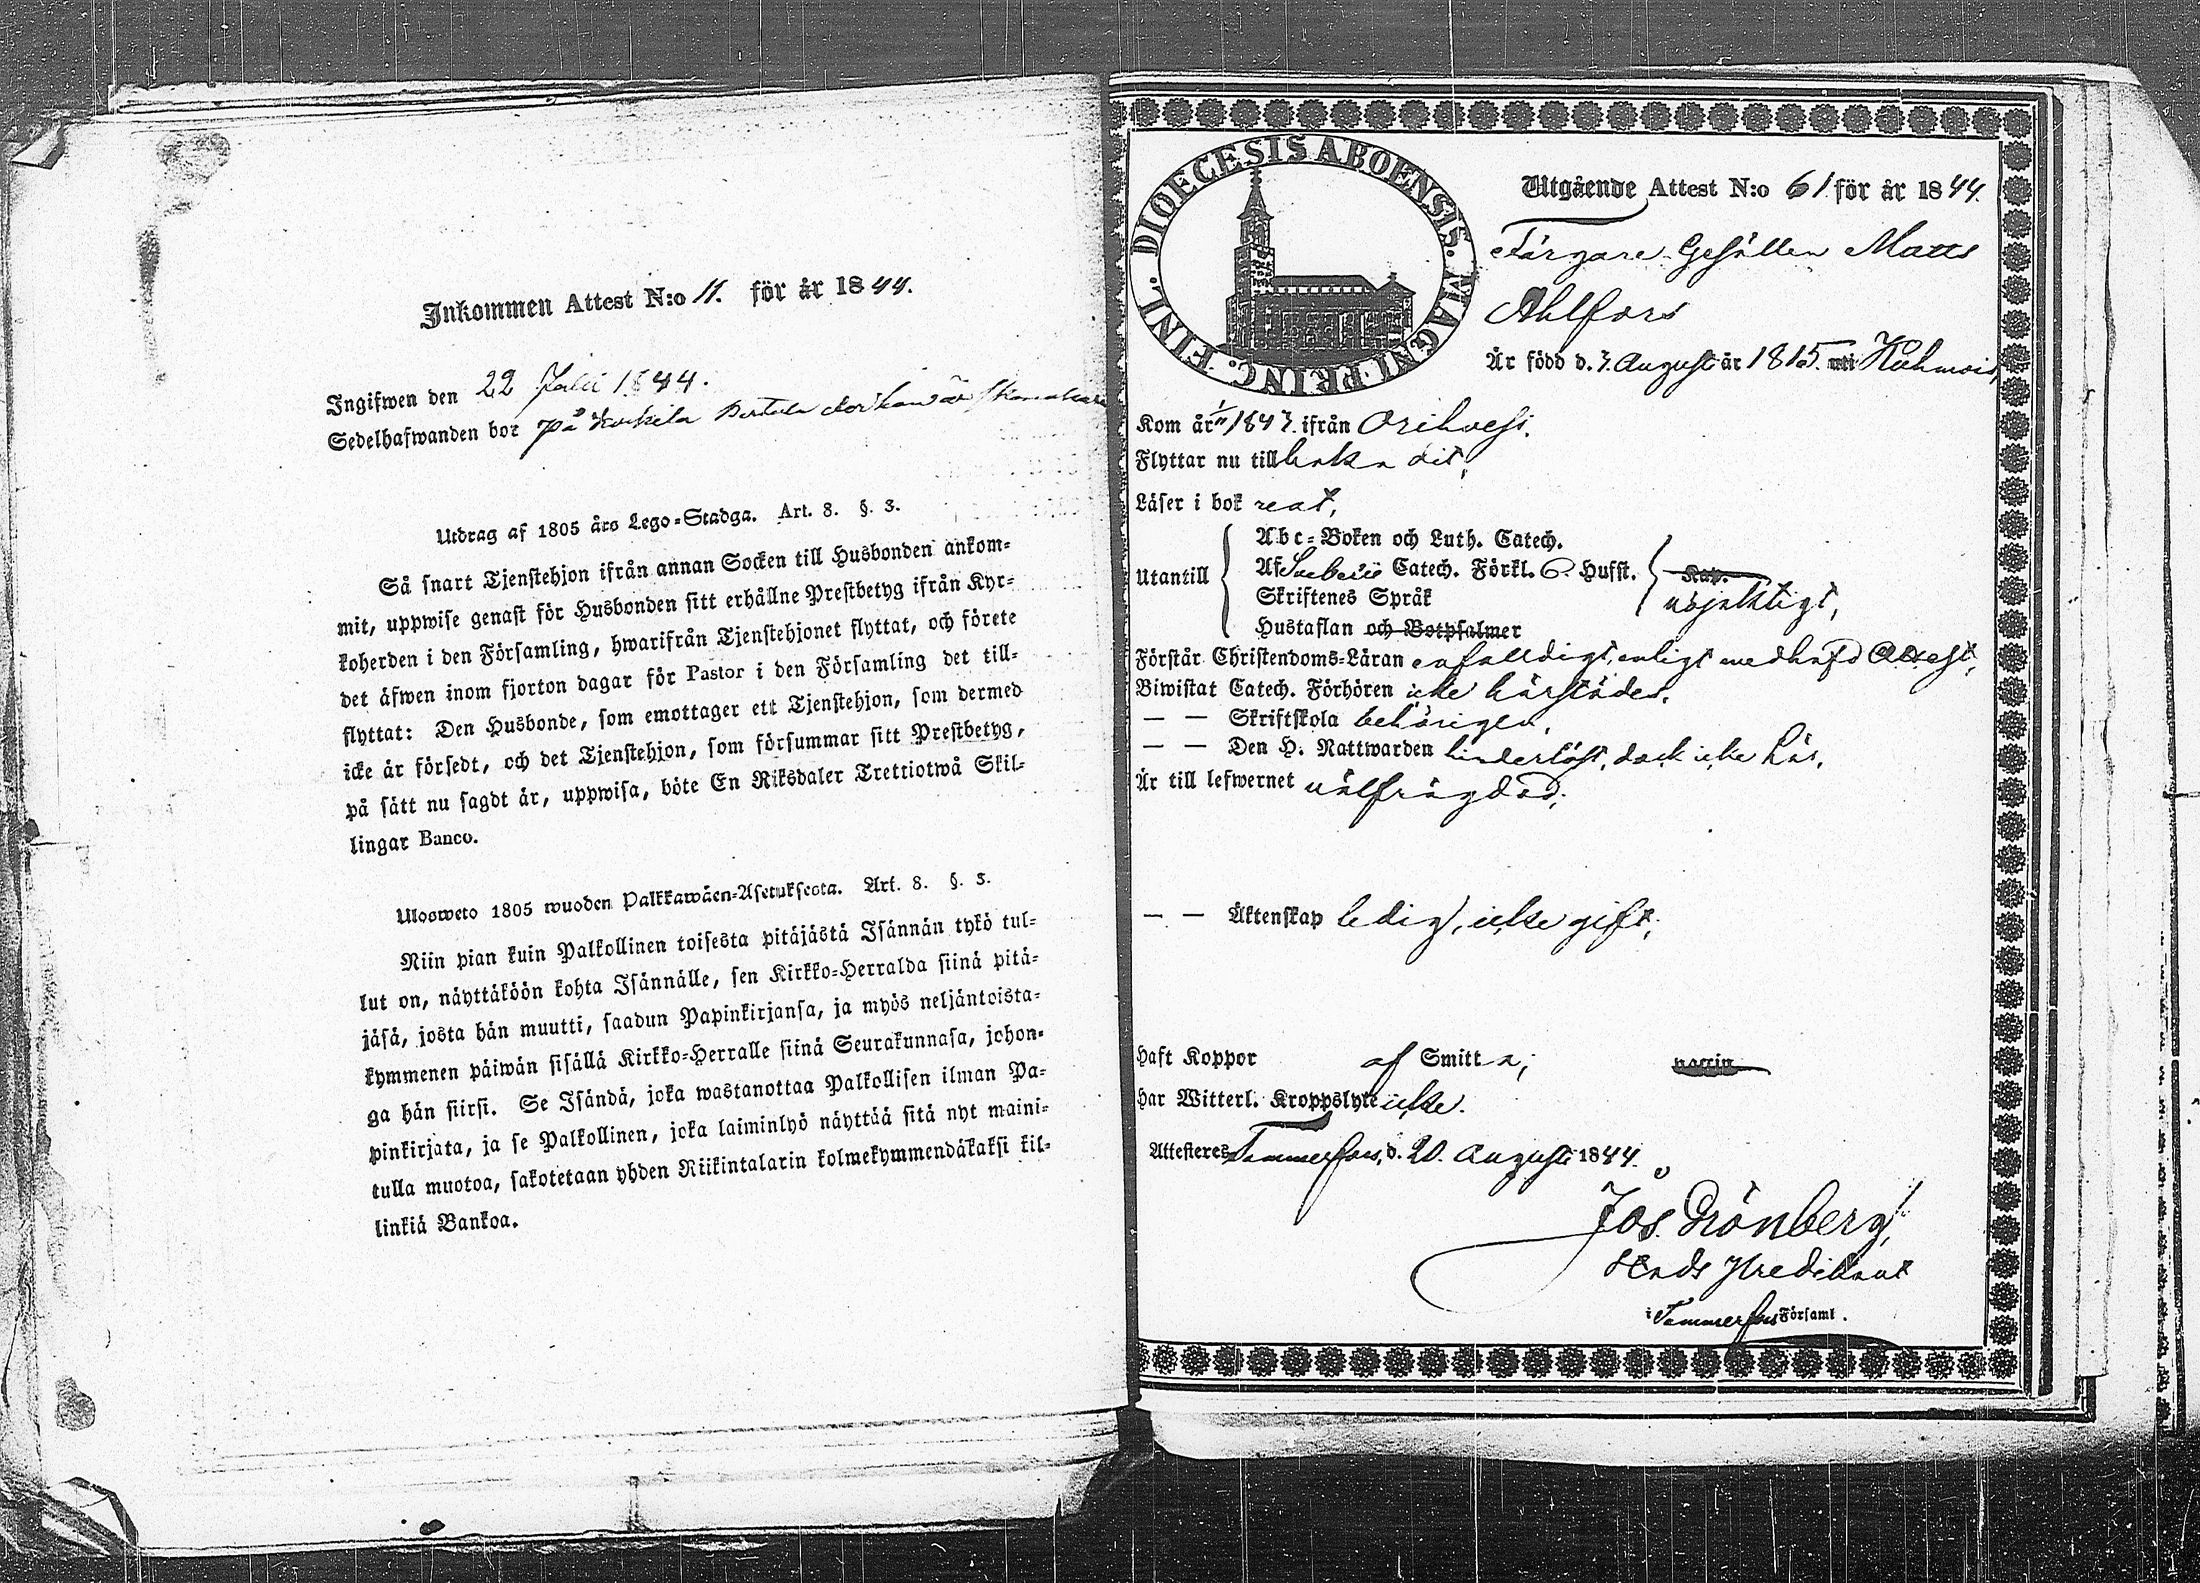 Inkommen Attest N:o 11. för år 1844.
Ingifwen den 22 Julii 1844.
Sedelhafwanden bor på
Utdrag af 1805 års Lego-Stadga. Art. 8. §. 3.
Så snart Tjenstehjon ifrån annan Socken till Husbonden ankom-
mit, uppwise genast för Husbonden sitt erhållne Prestbetyg ifrån Kyr-
koherden i den Församling, hwarifrån Tjenstehjonet flyttat, och förete
det äfwen inom fjorton dagar för Pastor i den Församling det till-
flyttat: Den Husbonde, som emottager ett Tjenstehjon, som dermed
icke är försedt, och det Tjenstehjon, som försummar sitt Prestbetyg,
på sätt nu sagdt är, uppwisa, böte En Riksdaler Trettiotwå Skil-
lingar Banco.
Ulosweto 1805 wuoden Palkkawäen-Asetuksesta. Art. 8. §. 3.
Niin pian kuin Palkollinen toisesta pitäjästä Isännän tykö tul-
lut on, näyttäköön kohta Isännälle, sen Kirkko-Herralda siinä pitä-
jäsä, josta hän muutti, saadun Papinkirjansa, ja myös neljäntoista-
kymmenen päiwän sisällä Kirkko-Herralle siinä Seurakunnasa, johon-
ga hän siirsi. Se Isändä, joka wastanottaa Palkollisen ilman Pa-
pinkirjata, ja se Palkollinen, joka laiminlyö näyttää sitä nyt maini-
tulla muotoa, sakotetaan yhden Riikintalarin kolmekymmendäkaksi kil-
linkiä Bankoa.
DIOECESIS ABOENSIS. MAGNI PRINC. FINL.
Utgående Attest N:o 61 för år 1844.
Färgare Gesällen Matts
Ahlfors
Är född d. 3 August år 1815. uti Kuhmois,
Kom år 1843. ifrån Orihvesi.
Flyttar nu till baka dit,
Läser i bok reat,
Abc-Boken och Luth. Catech.
Utantill Af Svebelii Catech. Förkl. 6 Hufst. Kap.
Skriftenes Språk nöjaktigt,
Hustaflan och Botpsalmer
Förstår Christendoms-Läran enfaldigt, enligt medhafd Attest,
Biwistat Catech. Förhören icke härstädes.
— — Skriftskola behörigen,
— — Den H. Nattwarden hinderlöst, dock icke här.
Är till lefwernet wälfrägdad;
— — Äktenskap ledig, icke gift;
Haft Koppor af Smitta;
Har Witterl. Kroppslyte icke.
Attesteres Tammerfors, d. 20. Augusti 1844.
Jos. Grönberg,
Stads Predikant
i Tammerfors Församl.